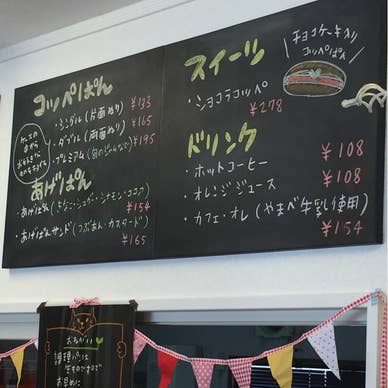 コッペぱん
・シングル(片面ぬり) ¥135
・ダブル(両面ぬり) ¥165
・プレミアム(旬のジャムなど) ¥195
あげぱん
・あげぱん(きなこ・シュガー・シナモン・ココア) ¥154
・あげぱんサンド(つぶあん・カスタード) ¥165
スイーツ
チョコケーキ入り
コッペぱん
・ショコラコッペ
¥278
ドリンク
・ホットコーヒー ¥108
・オレンジジュース ¥108
・カフェ・オレ(やまべ牛乳使用)
¥154
おねがい
調理パンは
お早めに